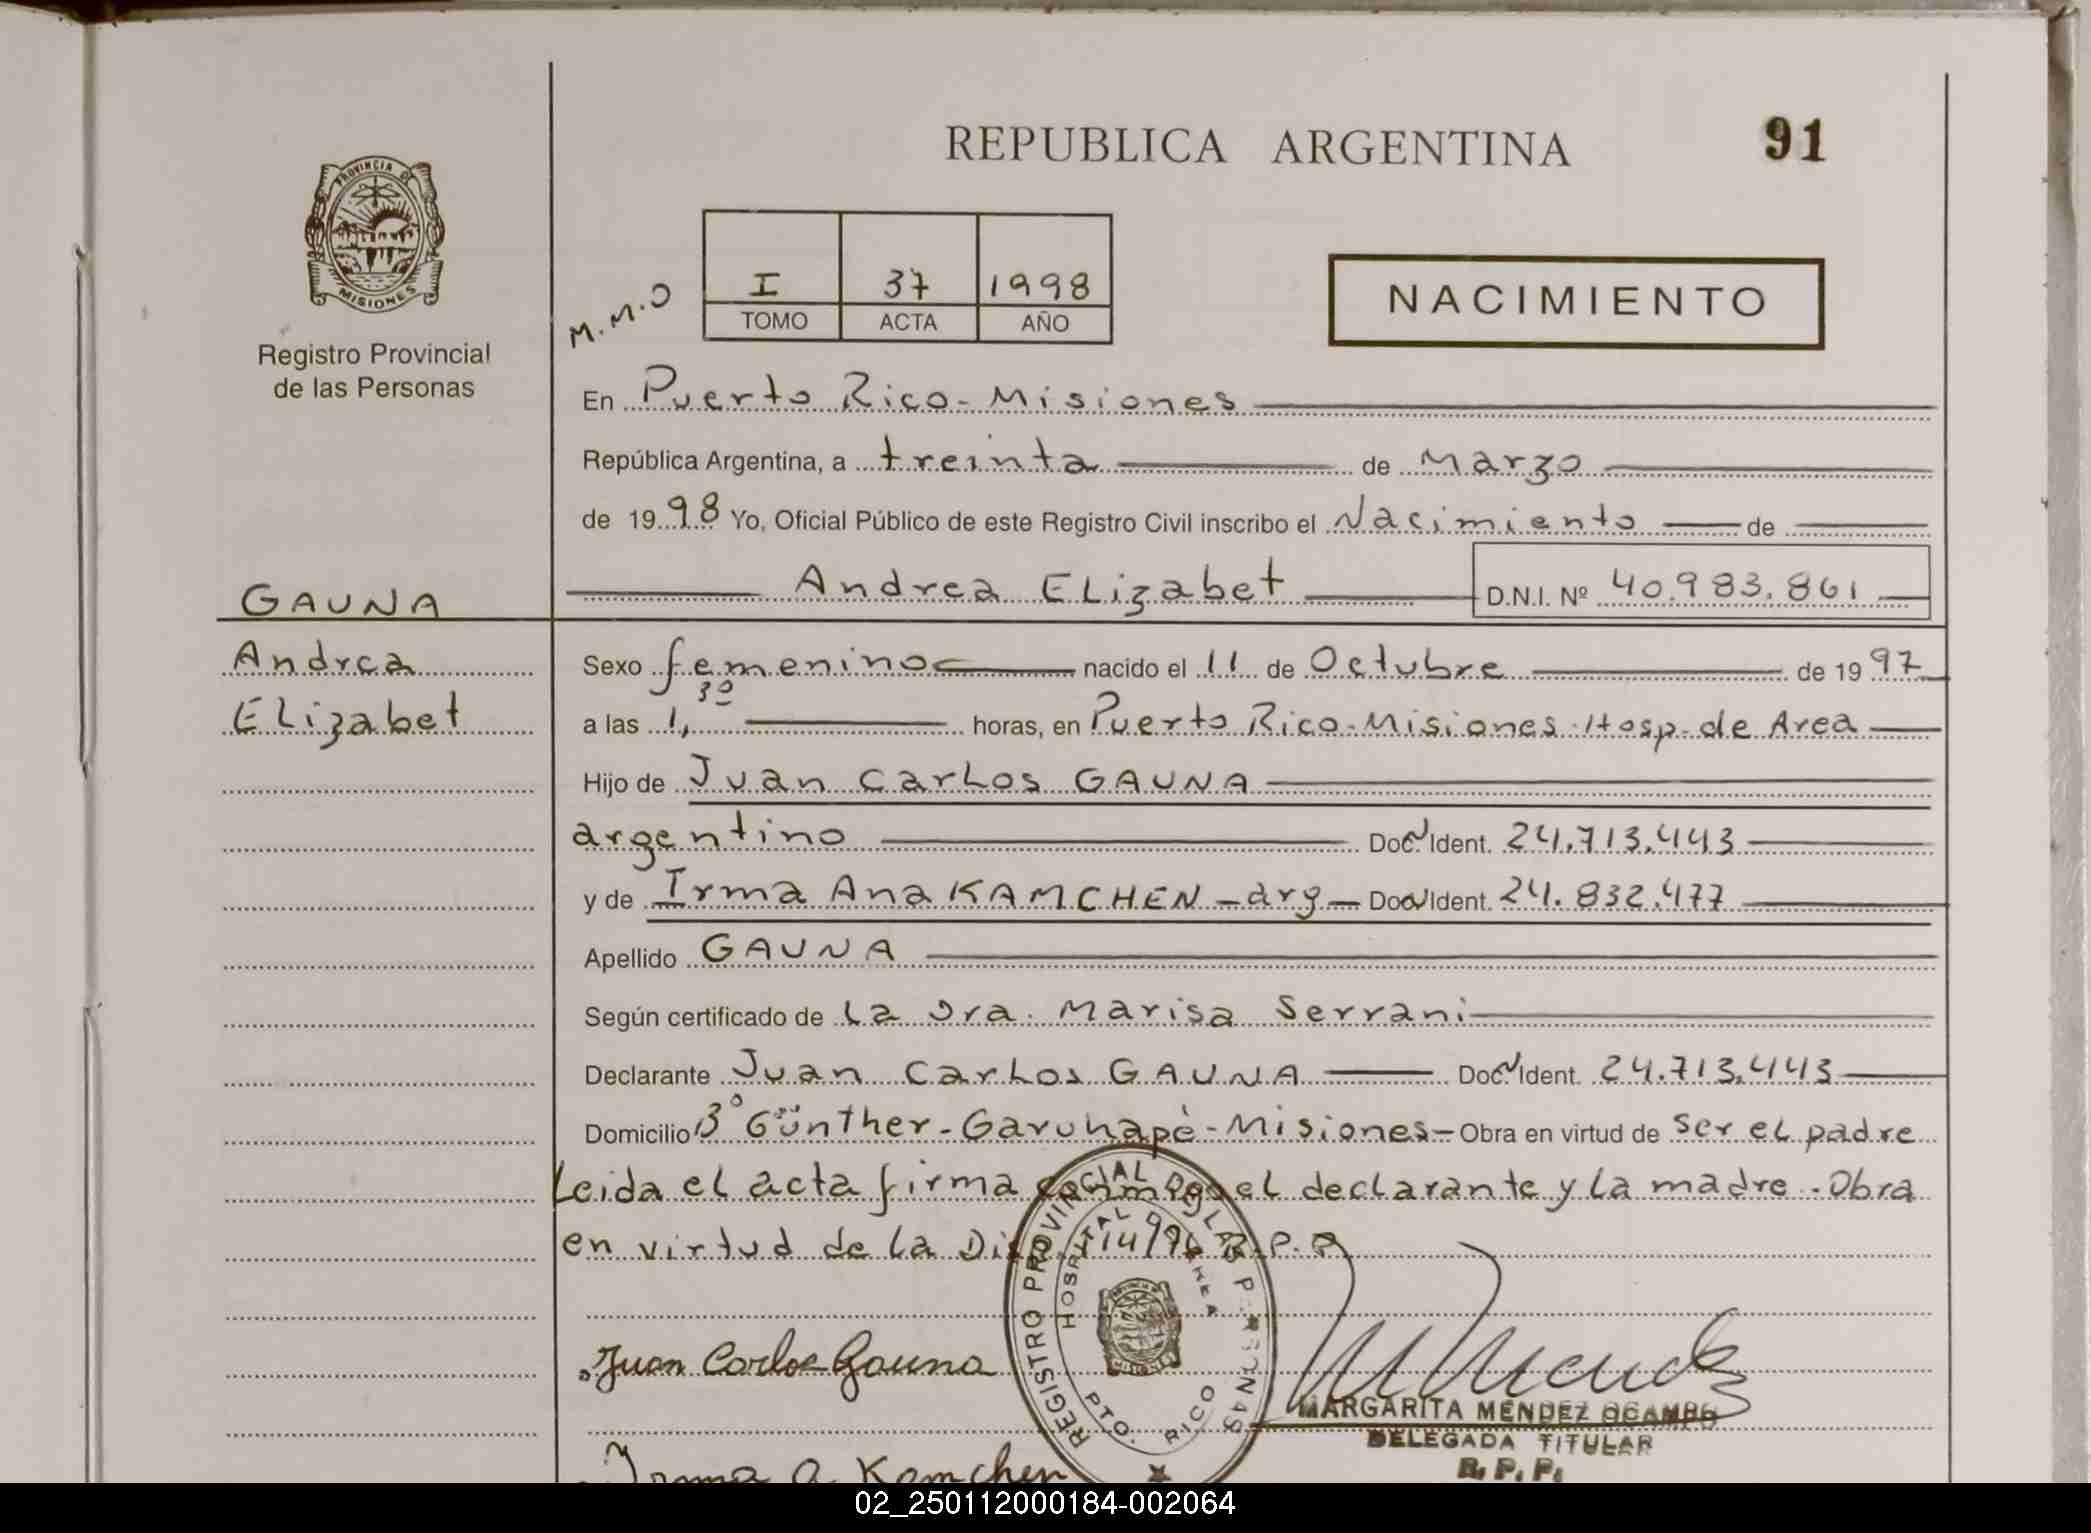 REPUBLICA ARGENTINA
91
PROVINCIA DE
MISIONES
Registro Provincial
de las Personas
M.M.O
I 37 1998
TOMO ACTA AÑO
NACIMIENTO
En Puerto Rico - Misiones
República Argentina, a treinta de Marzo
de 1998 Yo, Oficial Público de este Registro Civil inscribo el Nacimiento de
Andrea Elizabet D.N.I. Nº 40.983.861
GAUNA
Andrea
Elizabet
Sexo femenino nacido el 11 de Octubre de 1997
a las 1,30 horas, en Puerto Rico - Misiones - Hosp. de Area
Hijo de Juan Carlos GAUNA
argentino Doc. Ident. 24.713.443
y de Irma Ana KAMCHEN - arg - Doc. Ident. 24.832.477
Apellido GAUNA
Según certificado de La Dra. Marisa Serrani
Declarante Juan Carlos GAUNA Doc. Ident. 24.713.443
Domicilio Bº Günther - Garuhapé - Misiones - Obra en virtud de ser el padre
Leida el acta firma conmigo el declarante y la madre. Obra
en virtud de la Disp. R.P.P
REGISTRO PROVINCIAL DE LAS PERSONAS
HOSPITAL DE AREA
PTO. RICO
Juan Carlos Gauna
M Mendez
MARGARITA MENDEZ OCAMPO
DELEGADA TITULAR
R. P. P.
Irma A. Kamchen
02_250112000184-002064